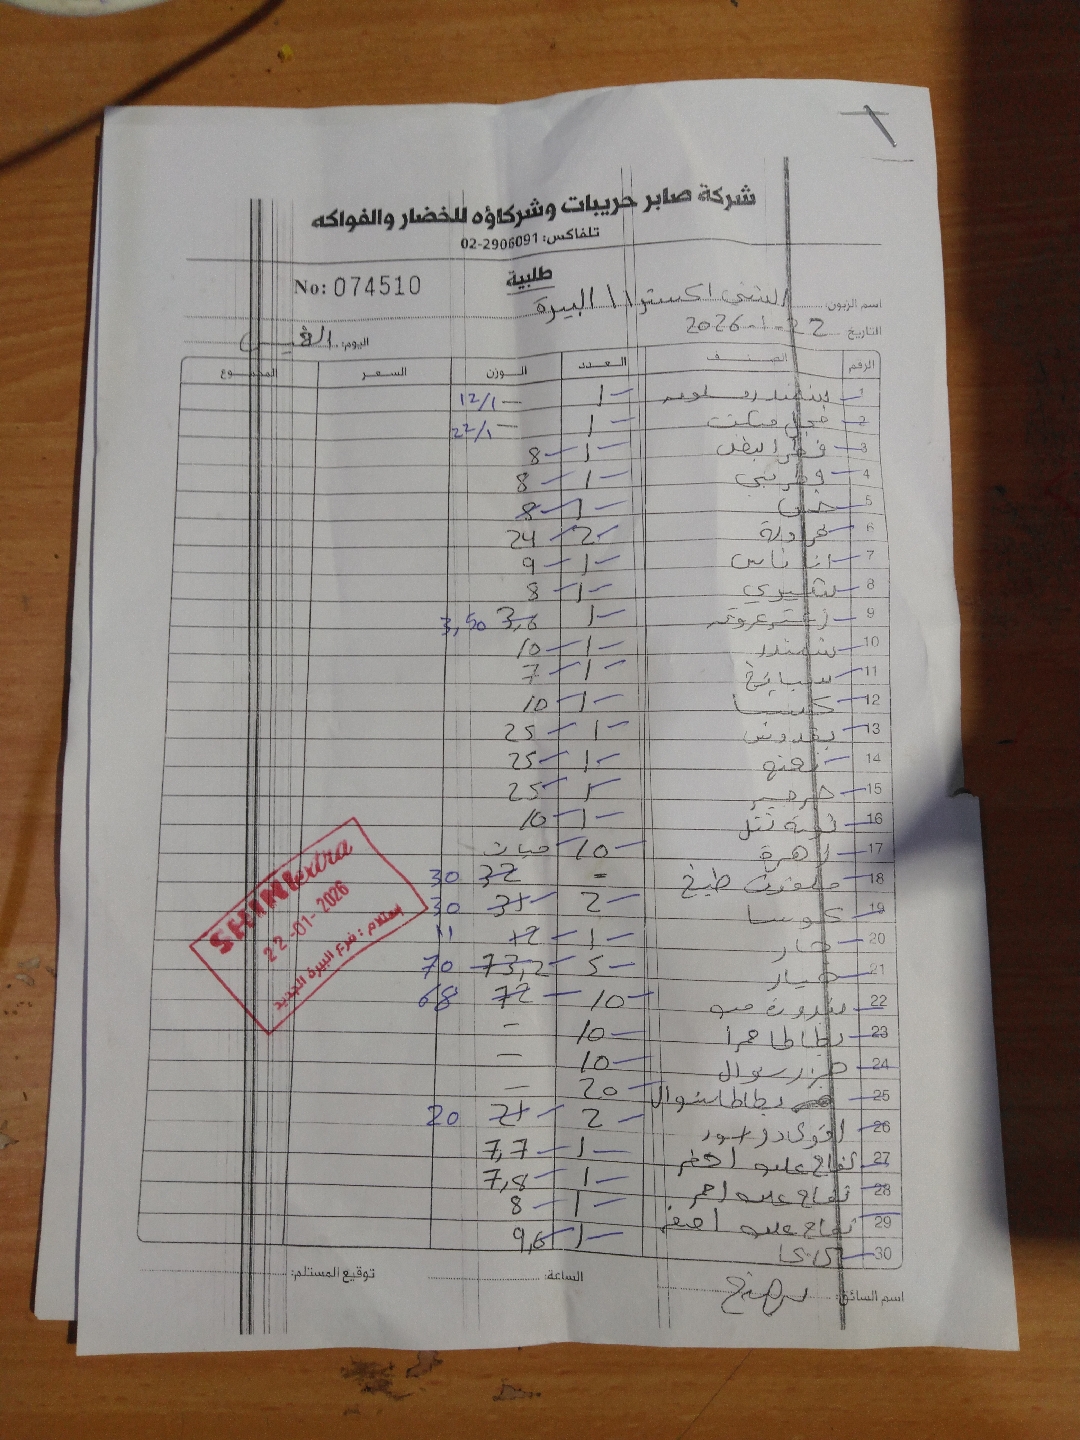 شركة صابر حريبات وشركاؤه للخضار والفواكه
تلفاكس: 02-2906091
طلبية
No: 074510
اسم الزبون: الشني اكسترا \ البيرة
التاريخ: 22-1-2026
اليوم:
الرقم الصنف العدد الوزن السعر المجموع
1 1 — 12/1
2 1 — 22/1
3 1 8
4 1 8
5 خس 1 8
6 2 24
7 اناناس 1 9
8 شيري 1 8
9 1 3,6 3,50
10 شمندر 1 10
11 سبانخ 1 7
12 1 10
13 بقدونس 1 25
14 نعنع 1 25
15 جرجير 1 25
16 1 10
17 زهرة 10 حبات
18 ملفوف طبخ = 32 30
19 كوسا 2 31 30
20 1 12 11
21 خيار 5 73,2 70
22 بندورة 10 72 68
23 بطاطا حمرا 10 —
24 جزر شوال 10 —
25 بطاطا شوال 20 —
26 2 21 20
27 تفاح علبه اخضر 1 7,7
28 تفاح علبه احمر 1 7,8
29 تفاح علبه اصفر 1 8
30 كاكا 1 9,6
اسم السائق:
الساعة:
توقيع المستلم:
SHINI extra
22-01-2026
استلام: فرع البيرة الجديد